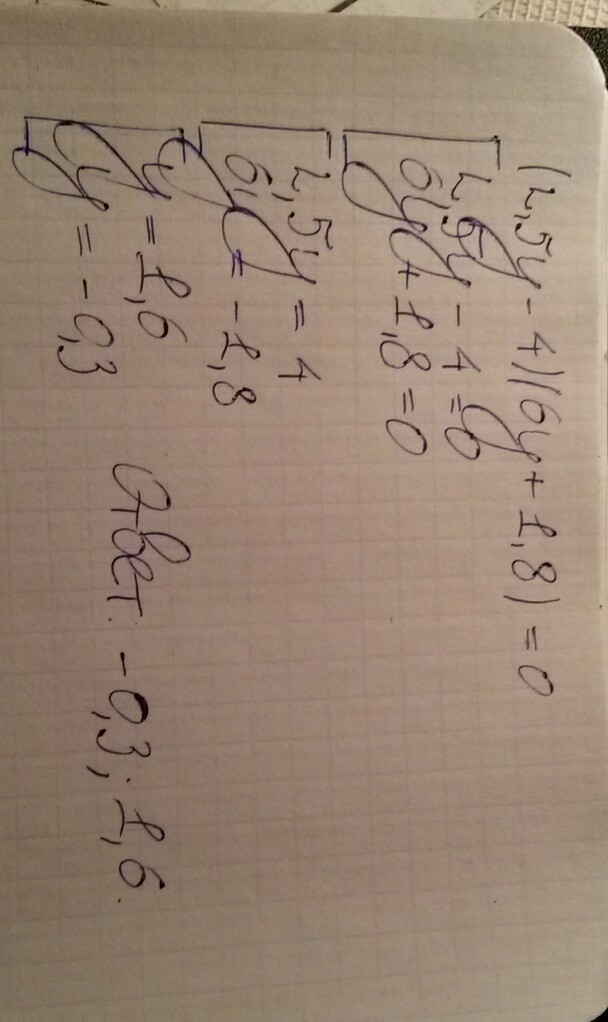 (2,5y - 4)(6y + 1,8) = 0
2,5y - 4 = 0
6y + 1,8 = 0
2,5y = 4
6y = -1,8
y = 1,6
y = -0,3
Ответ: -0,3; 1,6.